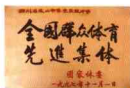 全国群众体育
先进集体
国家体委
一九九七年十一月一日